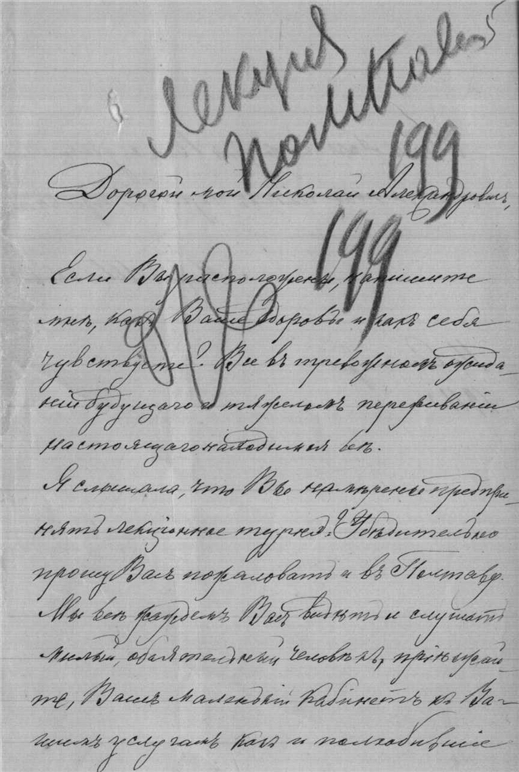 Лекция
Полтава
199
Дорогой мой Николай Александровичъ,
199
Если Вы расположены, напишите
мнѣ, какъ Ваше здоровье и какъ себя
чувствуете? Все въ тревожномъ ожида-
нiи будущаго и тяжеломъ переживанiи
настоящаго находимся
Я слышала, что Вы намѣрены предпри-
нять лекцiонное турнэ? Убѣдительно
прошу Васъ пожаловать и въ Полтаву.
Мы всѣ жаждемъ Васъ видѣть и слушать
милый, обаятельный человѣкъ, прiѣзжай-
те, Вашъ маленькiй кабинетъ къ Ва-
шимъ услугамъ какъ и полюбившiе